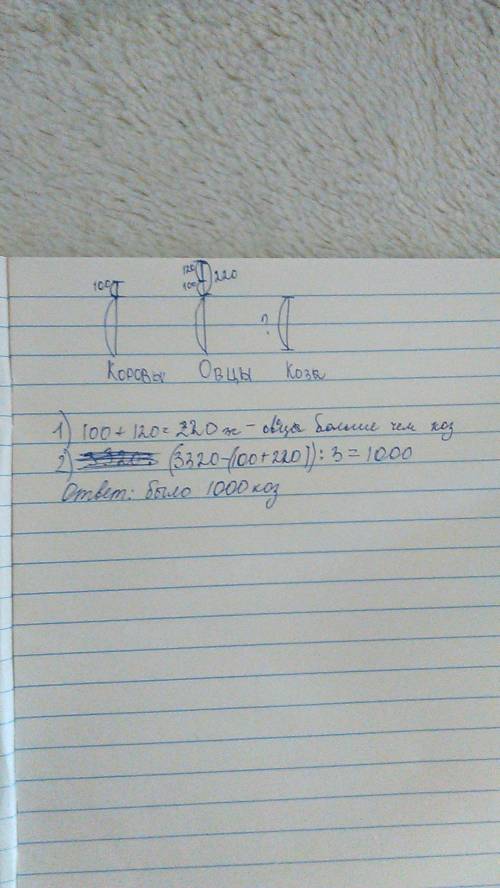 120
100 100 220
?
Коровы Овцы Козы
1) 100 + 120 = 220 ж - овец больше чем коз
2) (3320-(100+220)):3=1000
Ответ: было 1000 коз